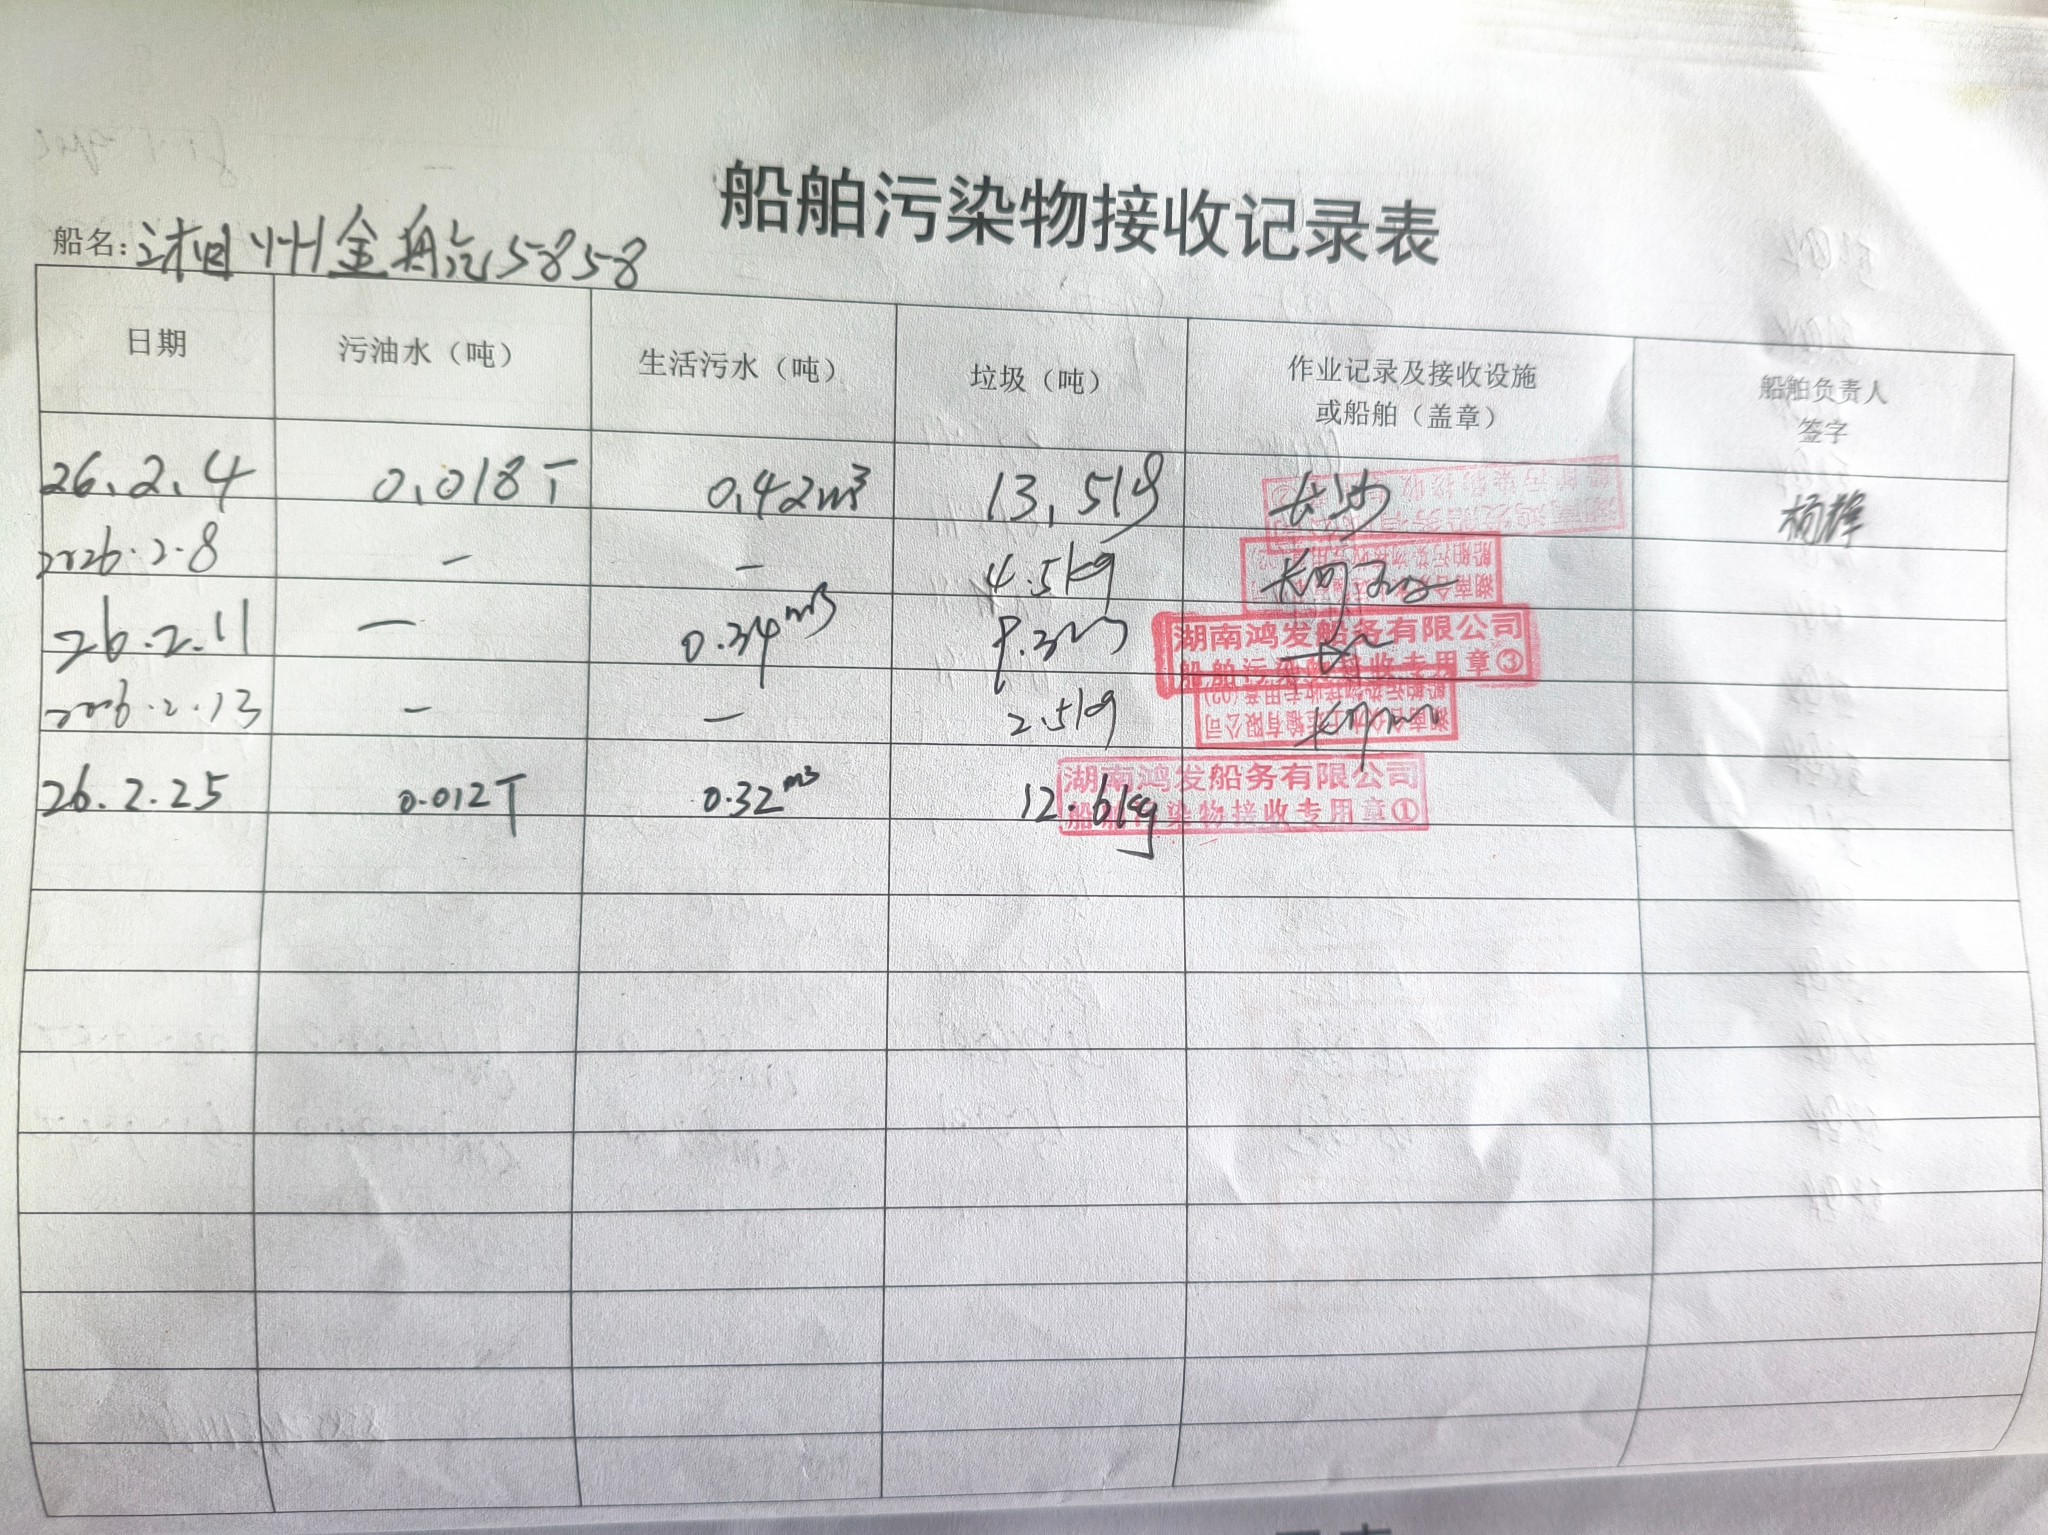 船舶污染物接收记录表
船名: 湘州金舟汽5858
日期 污油水（吨） 生活污水（吨） 垃圾（吨） 作业记录及接收设施或船舶（盖章） 船舶负责人签字
26.2.4 0.018T 0.42m³ 13.5kg 长沙 杨辉
2026.2.8 — — 4.5kg
26.2.11 — 0.34m³
湖南鸿发船务有限公司
船舶污染物接收专用章③
2026.2.13 — — 2.5kg
26.2.25 0.012T 0.32m³ 12.6kg
湖南鸿发船务有限公司
船舶污染物接收专用章①